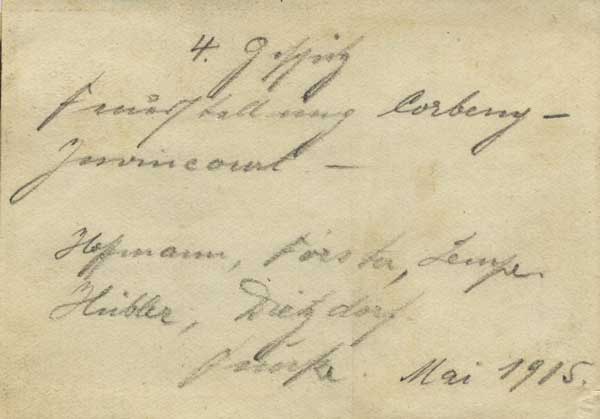 4. Geschütz
Feuerstellung Corbeny –
Juvincourt –
Hofmann, Förster, Lempe
Hübler, Dietzdorf
Mai 1915.